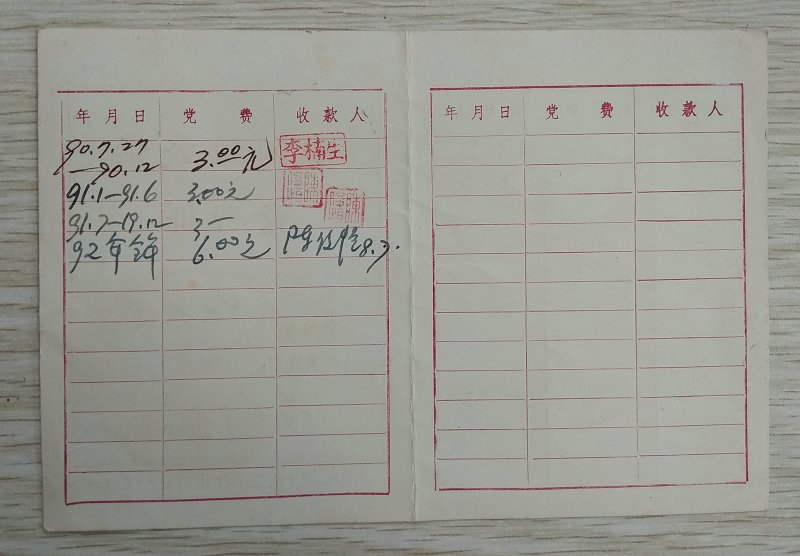 年月日 党费 收款人
90.7.27 3.00元 李楠生
—90.12
91.1—91.6 3.00元
91.7—19.12 3—
92年全年 6.00元 8.7.
年月日 党费 收款人